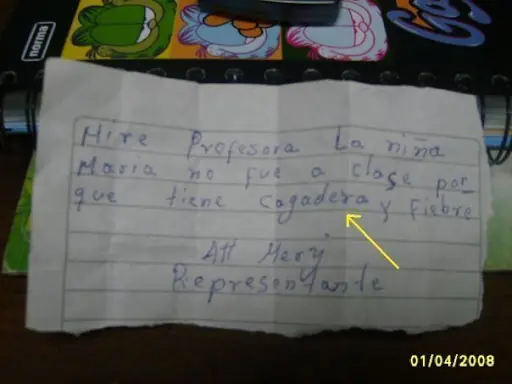 norma
Mire Profesora La niña
Maria no fue a clase por
que tiene cagadera y Fiebre
Att Mery
Representante
01/04/2008